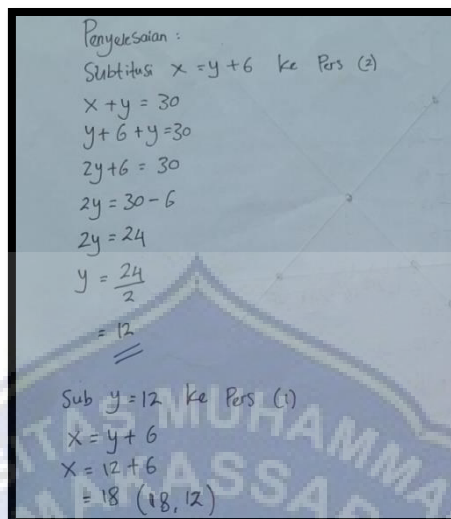 Penyelesaian :
Subtitusi x = y + 6 ke Pers (2)
x + y = 30
y + 6 + y = 30
2y + 6 = 30
2y = 30 - 6
2y = 24
y = 24/2
= 12
Sub y = 12 ke Pers (1)
x = y + 6
x = 12 + 6
= 18 (18, 12)
ITAS MUHAMMA
MAKASSAR